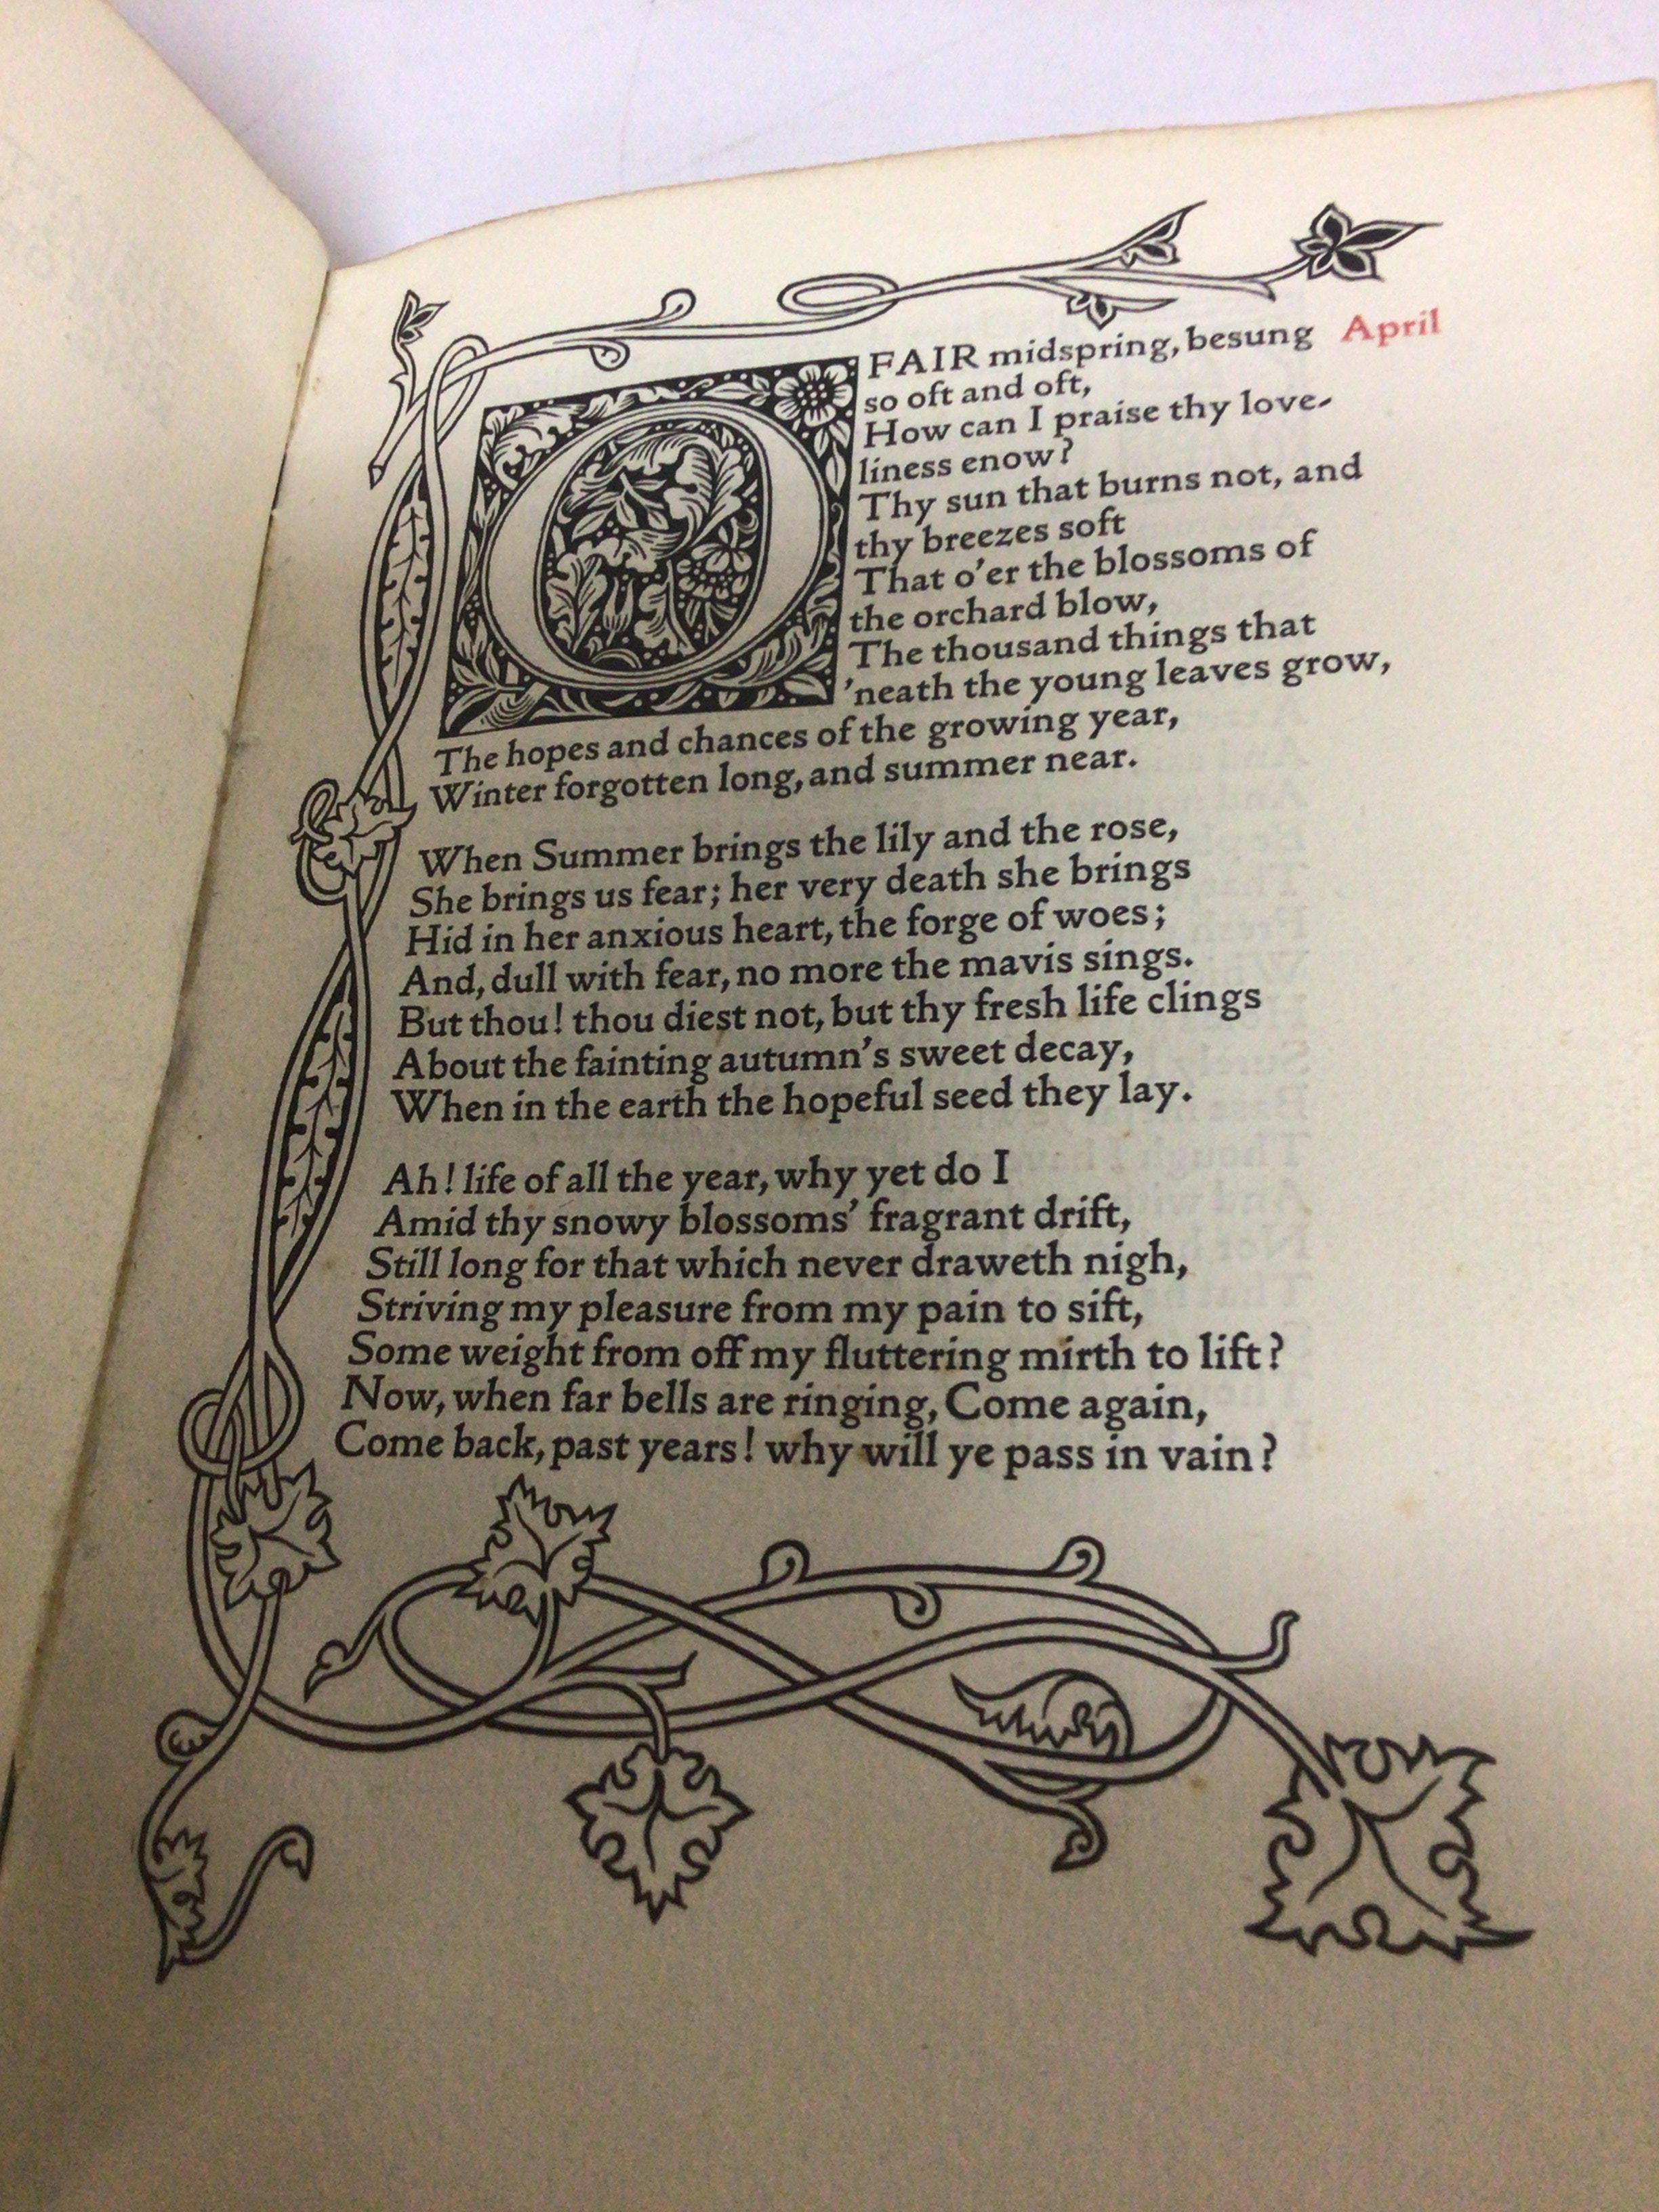 O FAIR midspring, besung April
so oft and oft,
How can I praise thy love-
liness enow?
Thy sun that burns not, and
thy breezes soft
That o'er the blossoms of
the orchard blow,
The thousand things that
'neath the young leaves grow,
The hopes and chances of the growing year,
Winter forgotten long, and summer near.
When Summer brings the lily and the rose,
She brings us fear; her very death she brings
Hid in her anxious heart, the forge of woes;
And, dull with fear, no more the mavis sings.
But thou! thou diest not, but thy fresh life clings
About the fainting autumn's sweet decay,
When in the earth the hopeful seed they lay.
Ah! life of all the year, why yet do I
Amid thy snowy blossoms' fragrant drift,
Still long for that which never draweth nigh,
Striving my pleasure from my pain to sift,
Some weight from off my fluttering mirth to lift?
Now, when far bells are ringing, Come again,
Come back, past years! why will ye pass in vain?